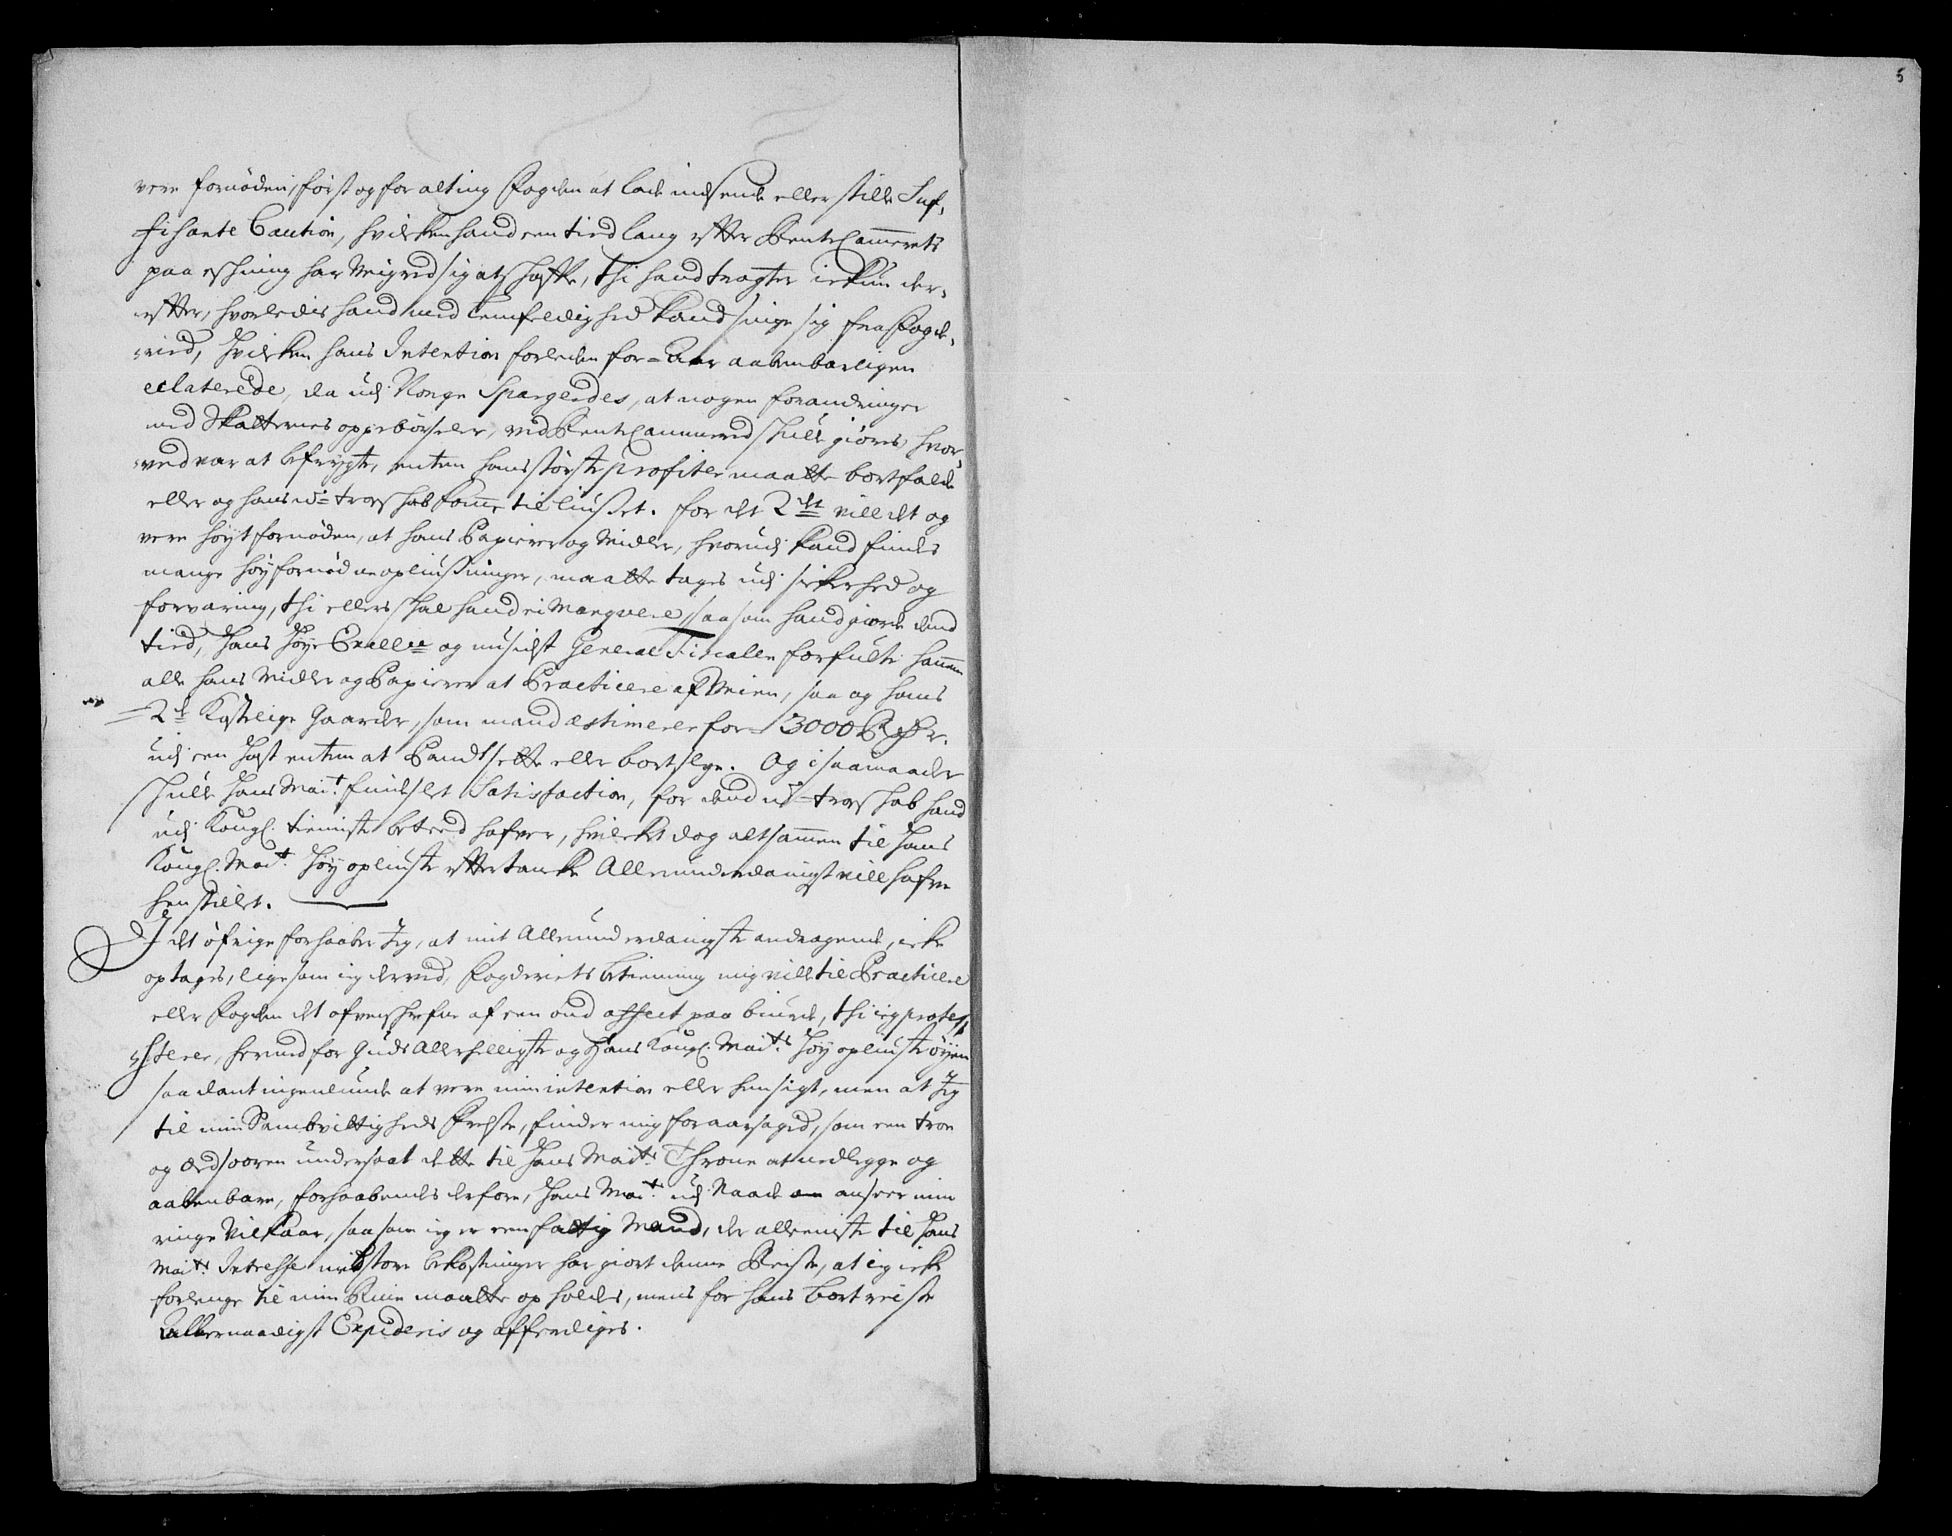 5
vere fornøden, først og for alting Fogden at lade indsende eller stille Suf-
fisante Caution, hvilken hand een tied lang efter RenteCammerets
paaeskning har veigred sig at skaffe, thi hand tragter ickun der-
efter, hvorledis hand med Lemfeldighed kand svinge sig fra Fogde-
ried, hvilken hans Intention forleden for-Aar aabenbarligen
eclaterede, da udj Norge Spargerdes, at nogen forandringer
med Skatternes oppebørseler, ved RenteCammered skulle giøres, hvor-
ved var at befrygte, enten hans største profiter maatte bortfalde
eller og hans u-troskab komme til liuset. for det 2det vill det og
vere høyt fornøden, at hans Papierer og Midler, hvorudj kand findes
mange høyfornødne opliusninger, maatte tages udj sickerhed og
forvaring, thi ellers skal hand ei manqvere, saasom hand giorde dend
tied, hans høye Excellce og nu sidst General Fiscalen forfulte hannem
alle hans Midler og Papierer at Practicere af Veien, saa og hans
2de kostelige Gaarder, som mand æstimerer for 3000 Rdr.
udj een hast enten at Pandtsette eller bortselge. Og i saamaader
skulle hans Mait. findes let Satisfaction, for dend u-troskab hand
udj Kongl. tieniste beteed hafver, hvilket dog altsammen til Hans
Kongl. Mait. høy opliuste eftertancke Allerunderdanigst vill hafve
henstillet.
I det øfrige forhaaber Jeg, at mit Allerunderdanigste andragende, icke
optages, ligesom ieg derved, Fogderiets betiening mig vill til Practicere
eller Fogden det ofvenskrefne af een ond affect paa biurde, thi ieg protes-
sterer, herved for Guds Allerhelligste og Hans Kongl. Maits. høy opliuste øyen
saadant ingenlunde at vere min intention eller hensigt, men at Jeg
til min Samvittigheds Frelse, finder mig foraarsaged, som een troe
og Eedsvoren undersaat dette til Hans Maits. Throne at nedlegge og
aabenbare, forhaabendes derfore, Hans Mait. udj Naade anseer min
ringe Vilkaar, saasom ieg er een fattig Mand, der alleeniste til Hans
Maits. Intresse med store bekostninger har giort denne Reise, at ieg icke
forlenge til min Ruin maatte opholdes, mens for hans bortreise
Allernaadigst Expideris og affærdiges.